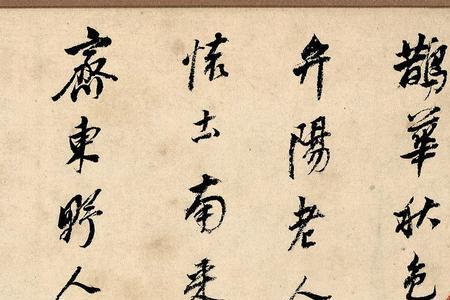 鵲華秋色
弁陽老人
懷土南來
齊東野人